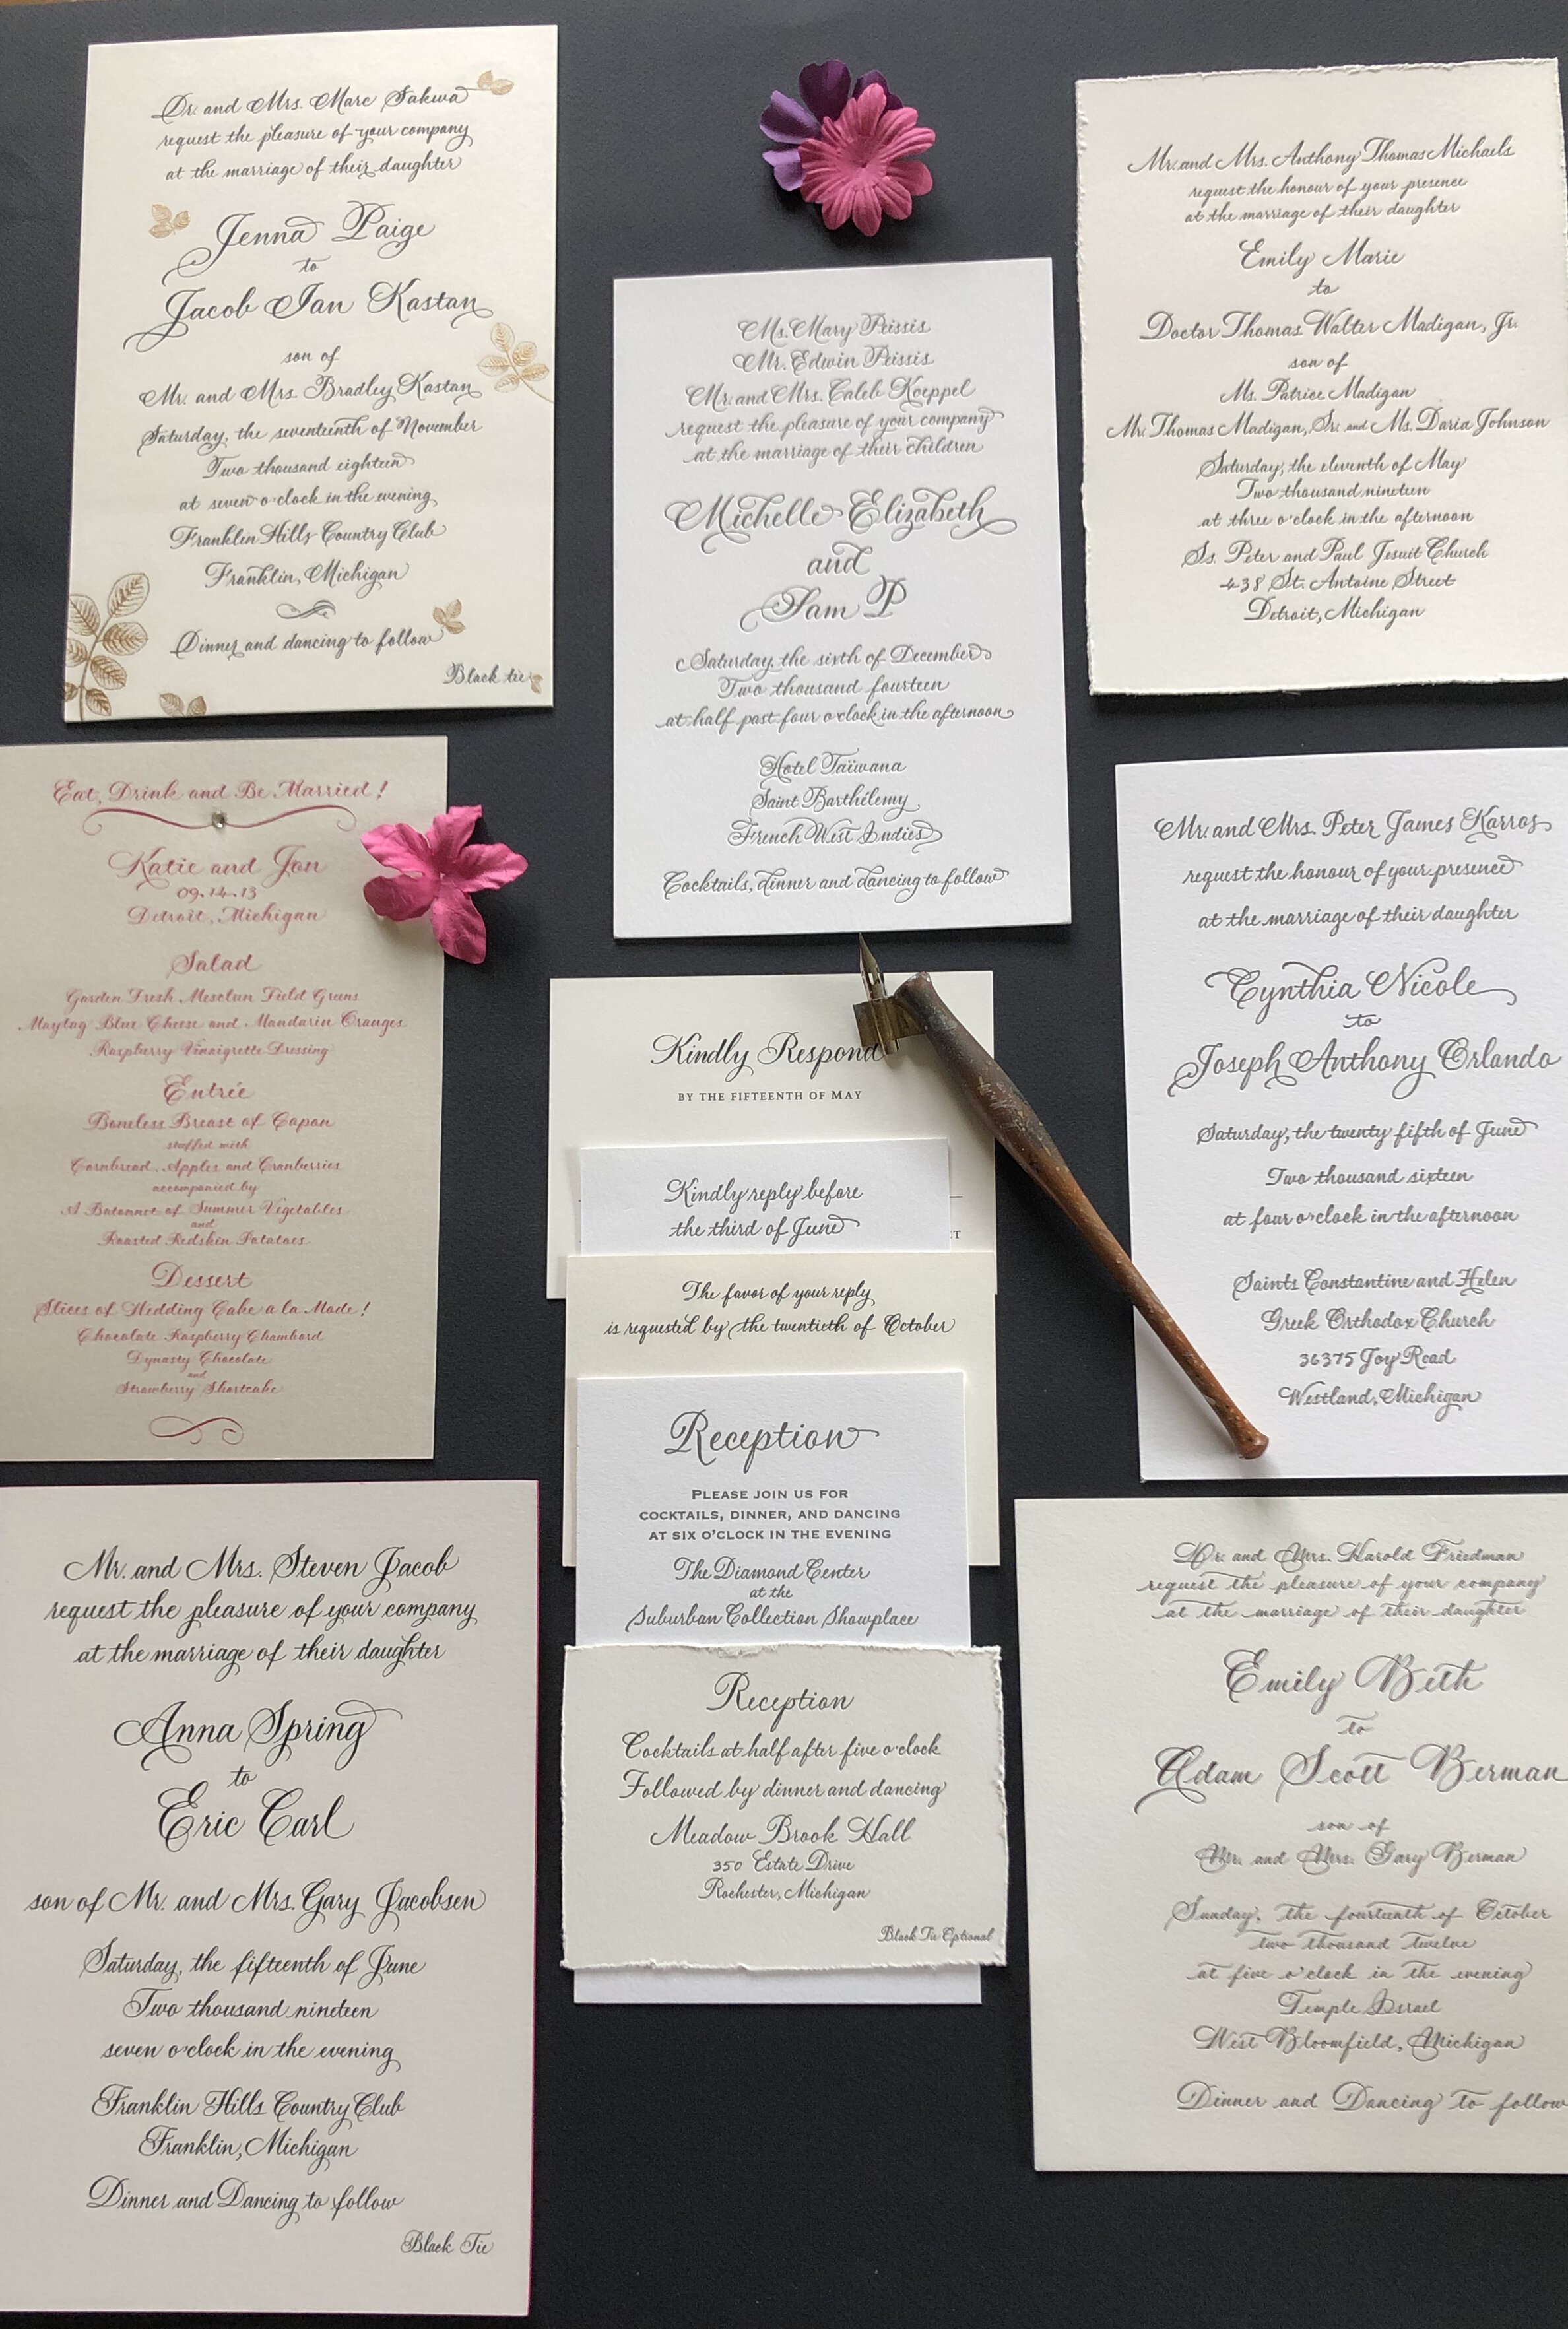 Dr. and Mrs. Marc Sakwa
request the pleasure of your company
at the marriage of their daughter
Jenna Paige
to
Jacob Ian Kastan
son of
Mr. and Mrs. Bradley Kastan
Saturday, the seventeenth of November
Two thousand eighteen
at seven o'clock in the evening
Franklin Hills Country Club
Franklin, Michigan
Dinner and dancing to follow
Black tie
Ms. Mary Peissis
Mr. Edwin Peissis
Mr. and Mrs. Caleb Koeppel
request the pleasure of your company
at the marriage of their children
Michelle Elizabeth
and
Sam P
Saturday, the sixth of December
Two thousand fourteen
at half past four o'clock in the afternoon
Hotel Taïwana
Saint Barthélemy
French West Indies
Cocktails, dinner and dancing to follow
Mr. and Mrs. Anthony Thomas Michaels
request the honour of your presence
at the marriage of their daughter
Emily Marie
to
Doctor Thomas Walter Madigan, Jr.
son of
Ms. Patrice Madigan
Mr. Thomas Madigan, Sr. and Ms. Daria Johnson
Saturday, the eleventh of May
Two thousand nineteen
at three o'clock in the afternoon
Ss. Peter and Paul Jesuit Church
438 St. Antoine Street
Detroit, Michigan
Eat, Drink and Be Married!
Katie and Jon
09.14.13
Detroit, Michigan
Salad
Garden Fresh Mesclun Field Greens
Maytag Blue Cheese and Mandarin Oranges
Raspberry Vinaigrette Dressing
Entrée
Boneless Breast of Capon
stuffed with
Cornbread, Apples and Cranberries
accompanied by
A Batonnet of Summer Vegetables
and
Roasted Redskin Potatoes
Dessert
Slices of Wedding Cake a la Mode!
Chocolate Raspberry Chambord
Dynasty Chocolate
and
Strawberry Shortcake
Kindly Respond
BY THE FIFTEENTH OF MAY
Kindly reply before
the third of June
ET
The favor of your reply
is requested by the twentieth of October
Reception
PLEASE JOIN US FOR
COCKTAILS, DINNER, AND DANCING
AT SIX O'CLOCK IN THE EVENING
The Diamond Center
at the
Suburban Collection Showplace
Reception
Cocktails at half after five o'clock
Followed by dinner and dancing
Meadow Brook Hall
350 Estate Drive
Rochester, Michigan
Black Tie Optional
Mr. and Mrs. Peter James Karros
request the honour of your presence
at the marriage of their daughter
Cynthia Nicole
to
Joseph Anthony Orlando
Saturday, the twenty fifth of June
Two thousand sixteen
at four o'clock in the afternoon
Saints Constantine and Helen
Greek Orthodox Church
36375 Joy Road
Westland, Michigan
Mr. and Mrs. Steven Jacob
request the pleasure of your company
at the marriage of their daughter
Anna Spring
to
Eric Carl
son of Mr. and Mrs. Gary Jacobsen
Saturday, the fifteenth of June
Two thousand nineteen
seven o'clock in the evening
Franklin Hills Country Club
Franklin, Michigan
Dinner and Dancing to follow
Black Tie
Dr. and Mrs. Harold Friedman
request the pleasure of your company
at the marriage of their daughter
Emily Beth
to
Adam Scott Berman
son of
Mr. and Mrs. Gary Berman
Sunday, the fourteenth of October
two thousand twelve
at five o'clock in the evening
Temple Israel
West Bloomfield, Michigan
Dinner and Dancing to follow